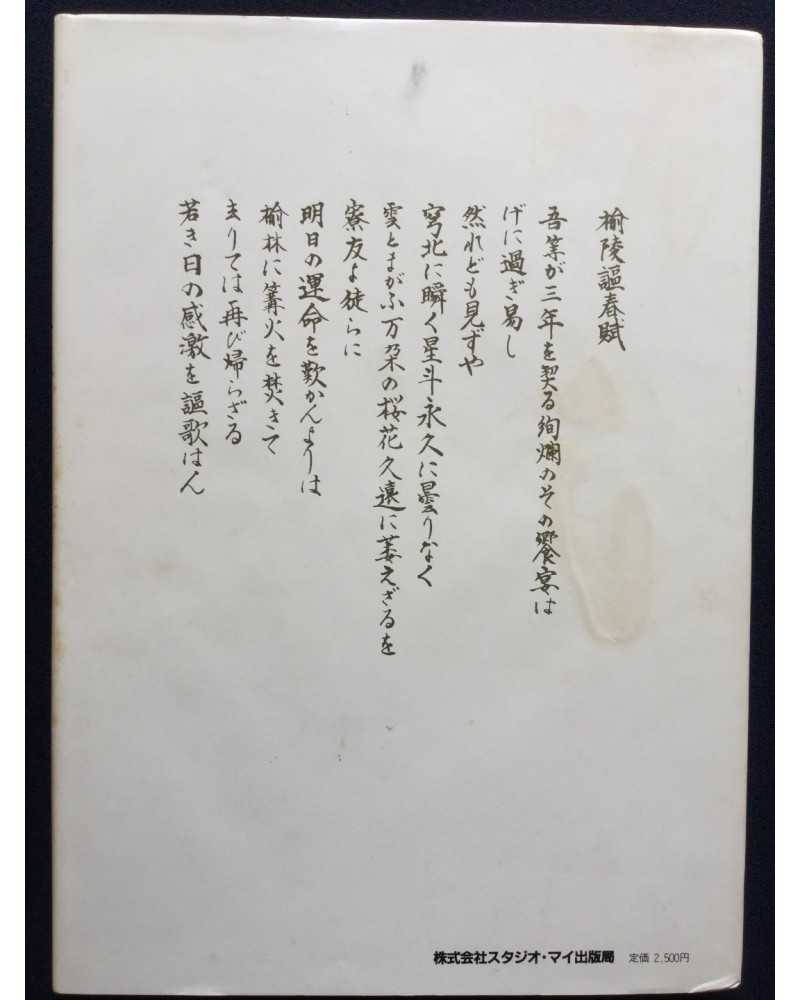 楡陵謳春賦
吾等が三年を契る絢爛のその饗宴は
げに過ぎ易し
然れども見ずや
穹北に瞬く星斗永久に曇りなく
雲とまがふ万朶の桜花久遠に萎えざるを
寮友よ徒らに
明日の運命を歎かんよりは
楡林に篝火を焚きて
去りては再び帰らざる
若き日の感激を謳歌はん
株式会社スタジオ・マイ出版局 定価 2,500円